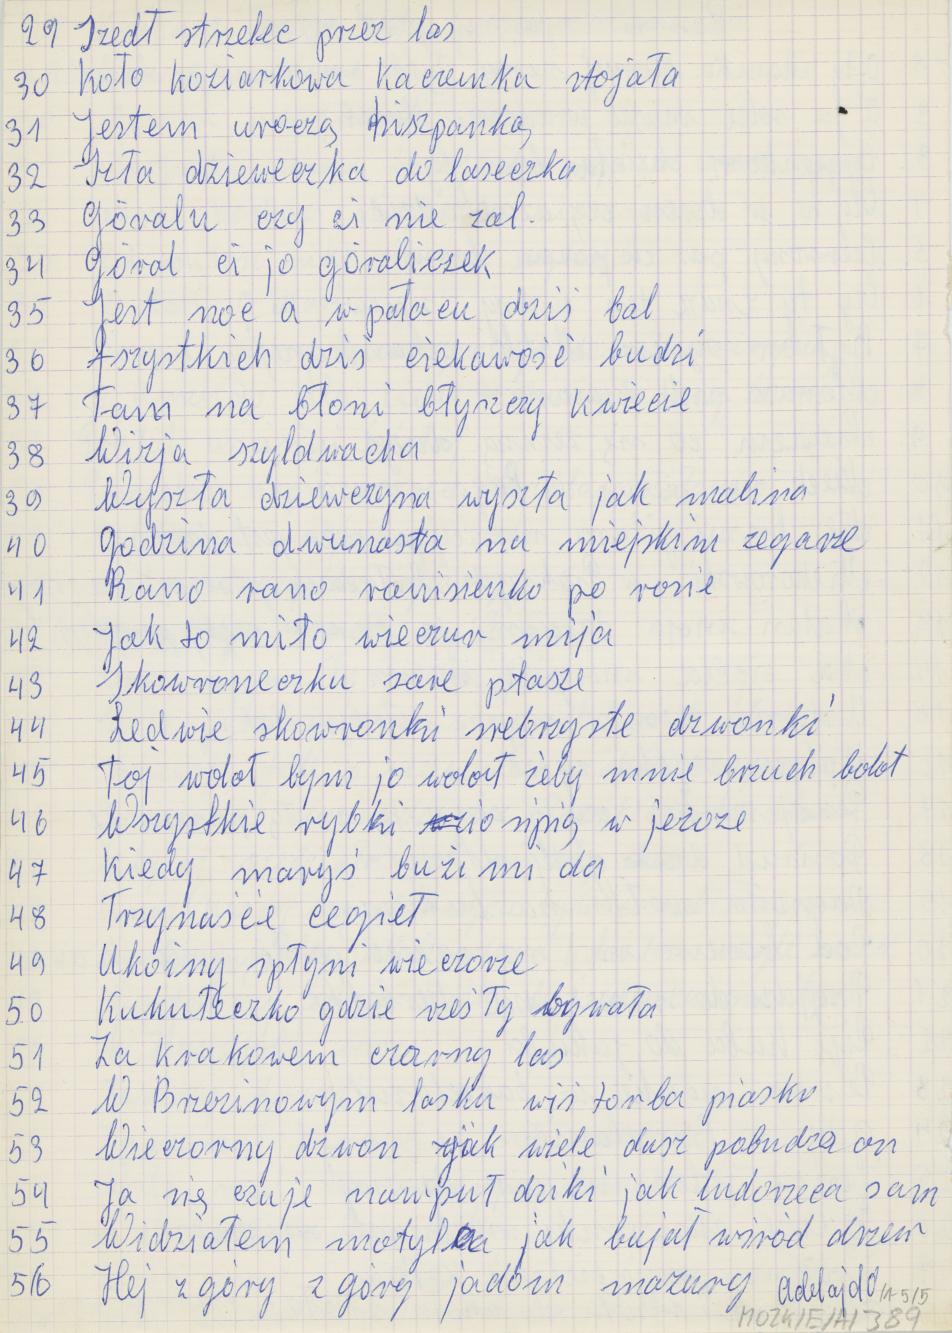 29 Szedł strzelec przez las
30 Koło koziarkowa Kaczemka stojała
31 Jestem uroczą hiszpanką
32 Szła dzieweczka do laseczka
33 Góralu czy ci nie zal.
34 Góral ci jo góraliczek
35 Jest noc a w pałacu dziś bal
36 Aszystkich dziś ciekawość budzi
37 Tam na błoni błyszczy kwiecie
38 Wizja szyldwacha
39 Wyszła dziewczyna wyszła jak malina
40 Godzina dwunasta na miejskim zegarze
41 Rano rano ranisienko po rosie
42 Jak to miło wieczur mija
43 Skowroneczku sare ptasze
44 Ledwie skowronki srebrzyste dzwonki
45 Toj woloł bym jo woloł żeby mnie brzuch boloł
46 Wszystkie rybki śpią w jeroze
47 Kiedy maryś buzi mi da
48 Trzynaście cegieł
49 Ukoiny spłyni wieczorze
50 Kukułeczko gdzie żeś Ty bywała
51 Za krakowem czarny las
52 W Brzezinowym lasku wiś torba piasku
53 Wieczorny dzwon jak wiele dusz pobudza on
54 Ja się czuje nawput dziki jak ludorzeca sam
55 Widziałem motyla jak bujał wśród drzew
56 Hej z góry z góry jadom mazury adelajda 1-5/5
MOZK/E/A/389